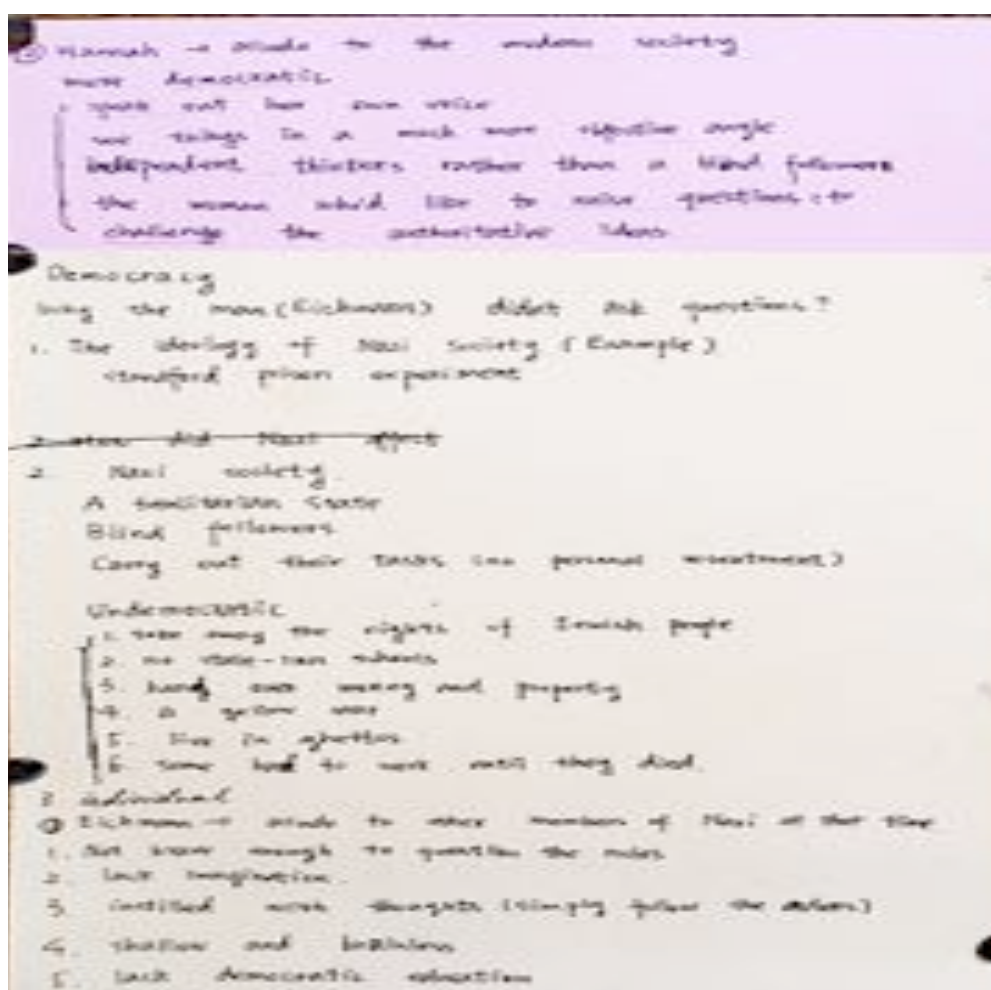 ② Hannah → allude to the modern society
more democratic
speak out her own voice
see things in a much more objective angle
independent thinkers rather than a blind followers
the woman who'd like to raise questions : to
challenge the authoritative ideas
Democracy
Why the man (Eichmann) didn't ask questions?
1. The ideology of Nazi Society (Example)
standford prison experiment
2. How did Nazi effect
2. Nazi society.
A totalitarian state
Blind followers
Carry out their tasks (no personal )
Undemocratic
1. take away the rights of Jewish people
2. no state-run schools
3. hand over money and property
4. a yellow star
5. live in ghettos
6. some had to work until they died.
3 individual
① Eichmann → allude to other members of Nazi at that time
1. Not brave enough to question the rules
2. lack imagination.
3. instilled with thoughts (simply follow the orders)
4. shallow and brainless
5. lack democratic education